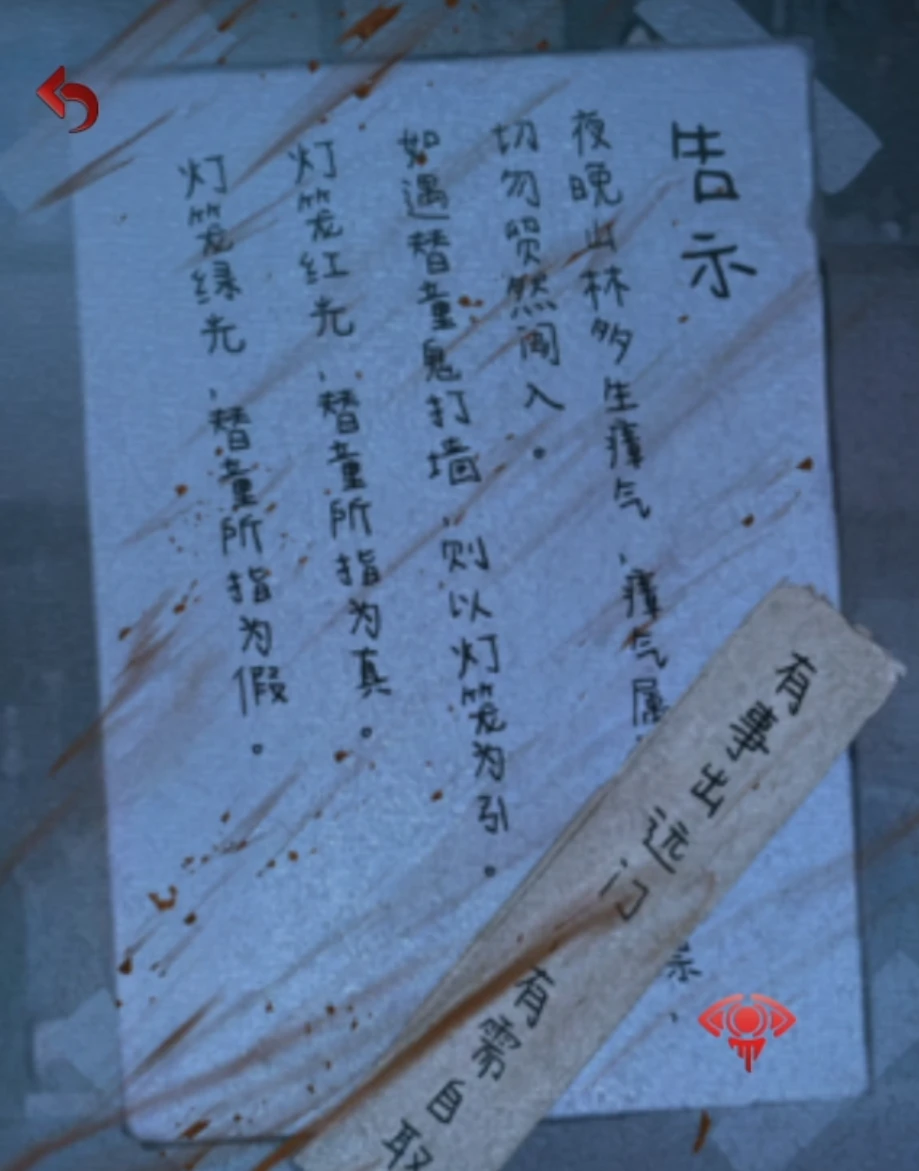 告示
夜晚山林多生瘴气、瘴气属
切勿贸然闯入。
如遇替童鬼打墙、则以灯笼为引。
灯笼红光、替童所指为真。
灯笼绿光、替童所指为假。
有事出远门
有需自取